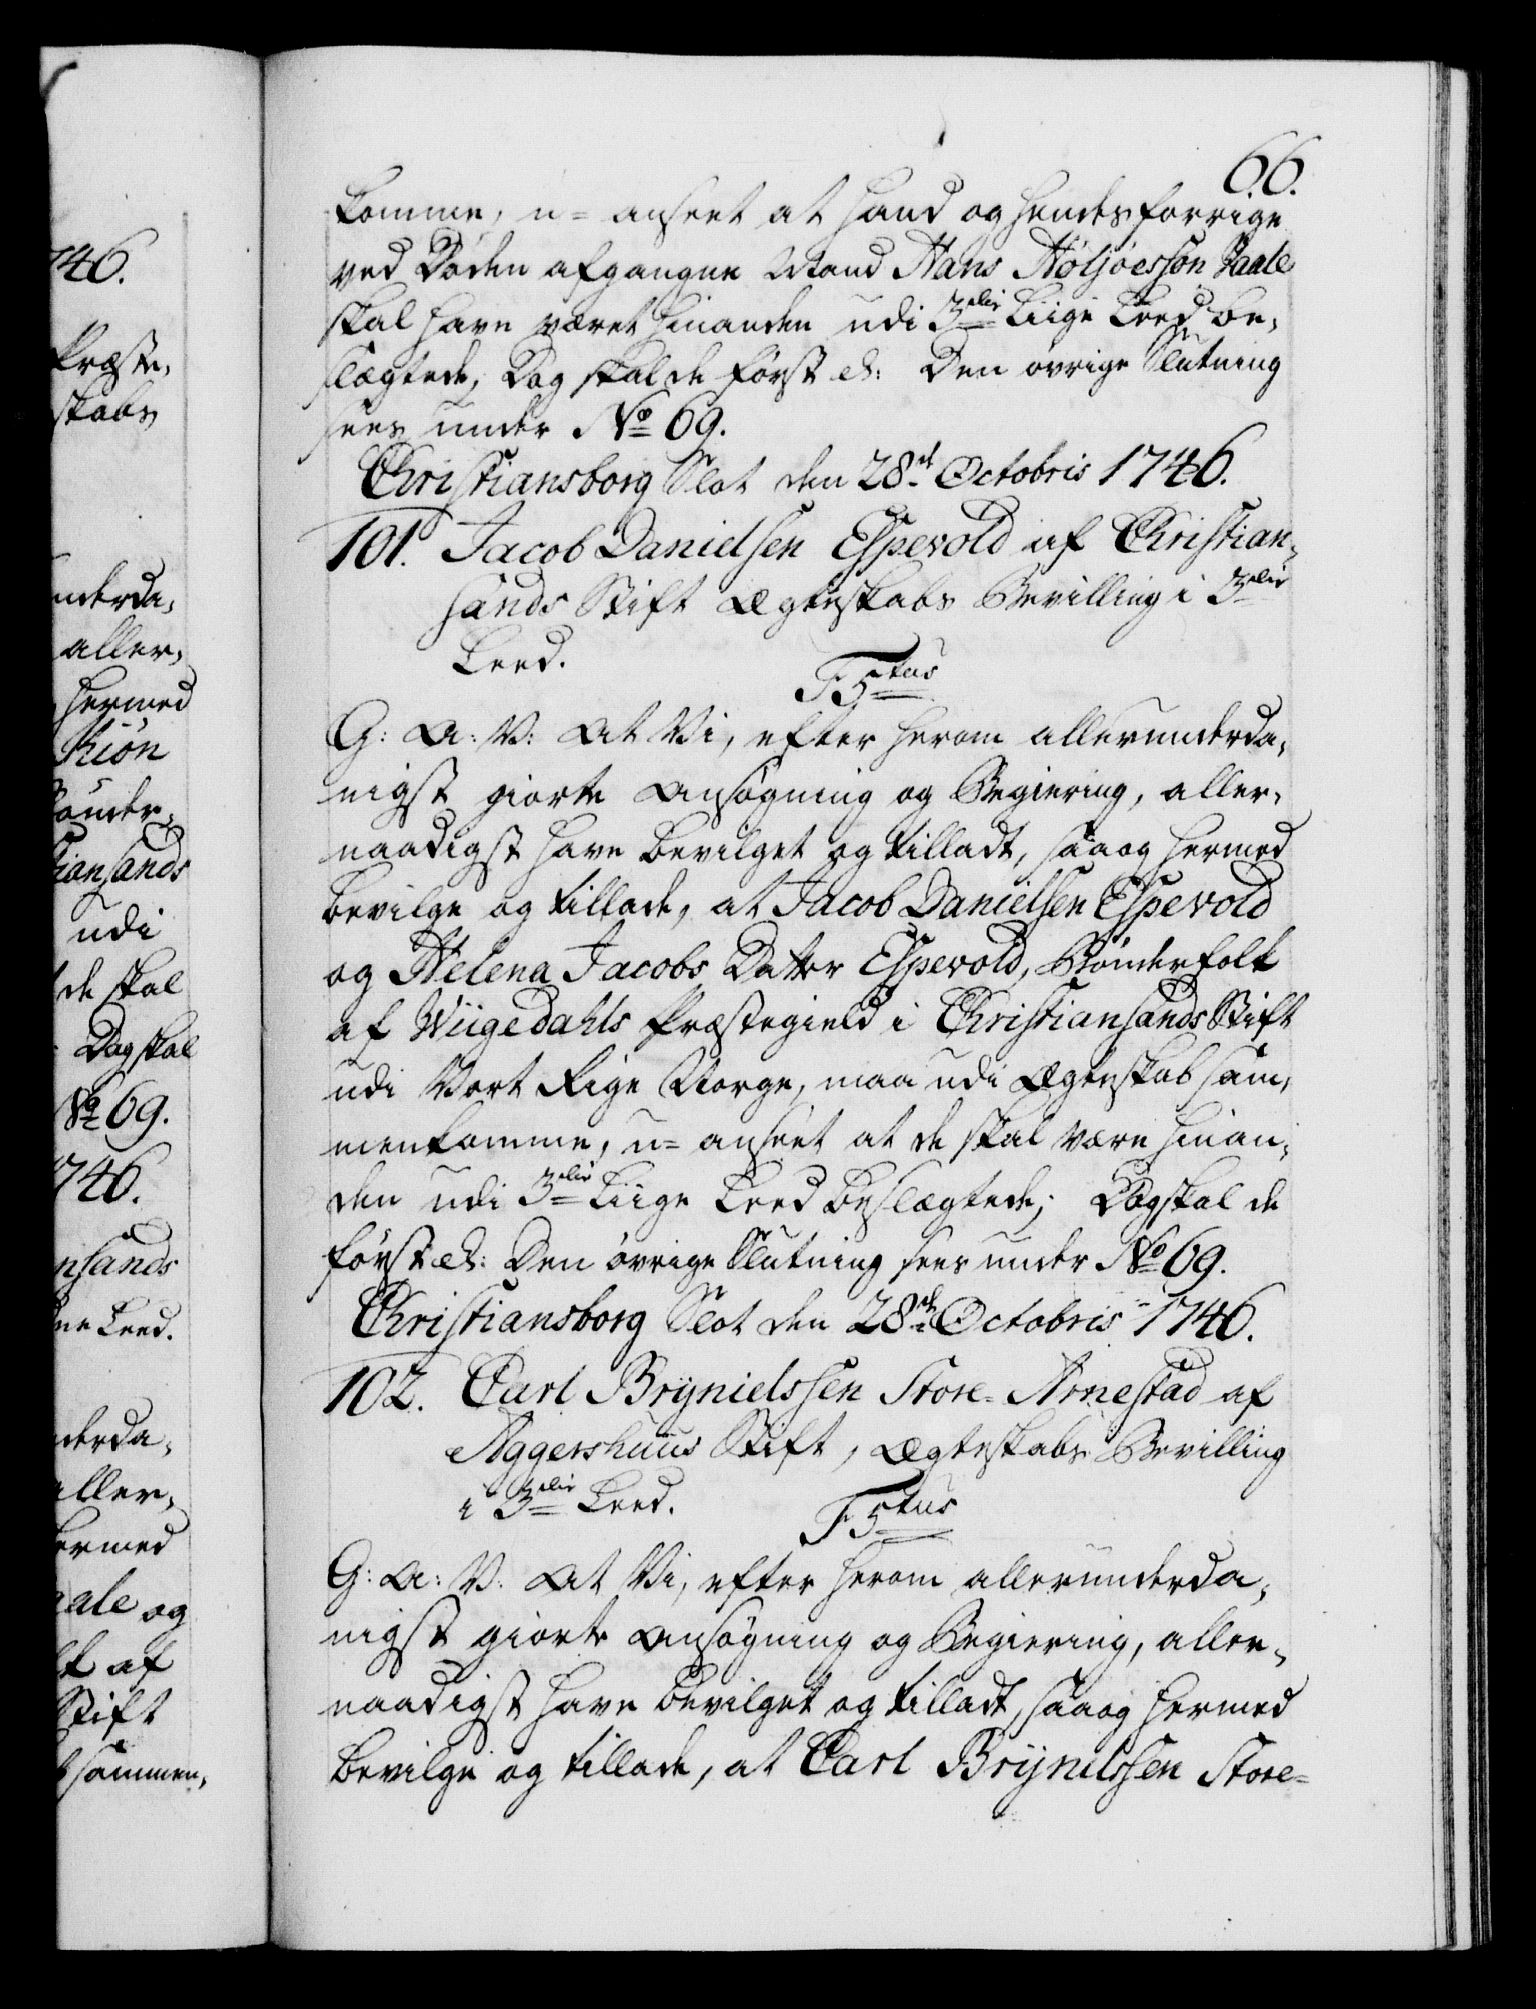 66.
komme, u= anseet at hand og hendes forrige
ved Døden afgangne Mand Hans Høljoesson Vaale
skal have været hinanden udi 3die Liige Leed be,
slægtede, Dog skal de først &: Den øvrige Slutning
sees under No 69.
Christiansborg Slot den 28de Octobris 1746.
101. Jacob Danielsen Espevold af Christian,
sands Stift Ægteskabs Bevilling i 3die
Leed.
F 5tus
G: A: V: At Vi, efter herom allerunderda,
nigst giorte Ansøgning og Begiering, aller,
naadigst have bevilget og tilladt, saa og hermed
bevilge og tillade, at Jacob Danielsen Espevold
og Helena Jacobs Datter Espevold, Bönderfolk
af Wiigedahls Præstegield i Christiansands Stift
udi Vort Rige Norge, maa udi Ægteskab sam,
menkomme, u= anseet at de skal være hinan,
den udi 3die Liige Leed beslægtede; Dog skal de
først &: Den øvrige Slutning sees under No 69.
Christiansborg Slot den 28de Octobris 1746.
102. Carl Brynielssen Store-Arnestad af
Aggershuus Stift, Ægteskabs Bevilling
i 3die Leed.
F 5tus
G: A: V: At Vi, efter herom allerunderda,
nigst giorte Ansøgning og Begiering, aller,
naadigst have bevilget og tilladt, saa og hermed
bevilge og tillade, at Carl Brynilssen Store-
746.
Præste,
skabs
nderda,
aller,
hermed
kiön
Bönder,
tiansands
udi
de skal
Dog skal
No 69.
746.
nsands
ne Leed.
nderda,
aller,
hermed
aale og
lk af
Stift
sammen,